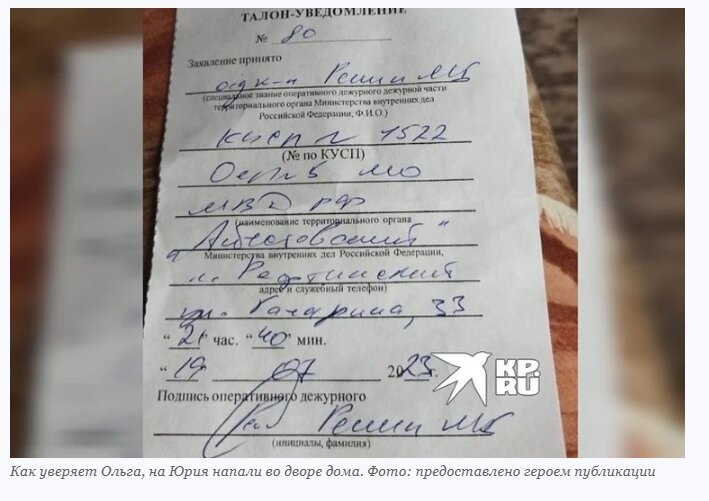 ТАЛОН-УВЕДОМЛЕНИЕ
№ 80
Заявление принято
(специальное звание оперативного дежурного дежурной части
территориального органа Министерства внутренних дел
Российской Федерации, Ф.И.О.)
КУСП № 1522
(№ по КУСП)
МО
МВД РФ
(наименование территориального органа
"Асбестовский"
Министерства внутренних дел Российской Федерации,
п. Рефтинский
адрес и служебный телефон)
ул. Гагарина, 33
"21" час. "40" мин.
"19" 07 2023 г.
KP.RU
Подпись оперативного дежурного
(инициалы, фамилия)
Как уверяет Ольга, на Юрия напали во дворе дома. Фото: предоставлено героем публикации